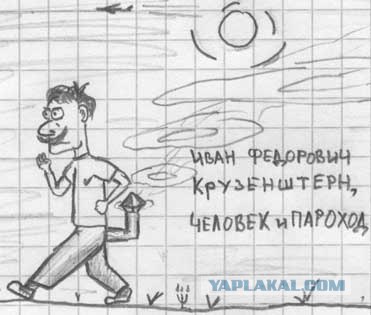 ИВАН ФЕДОРОВИЧ
КРУЗЕНШТЕРН,
ЧЕЛОВЕК и ПАРОХОД
YAPLAKAL.COM